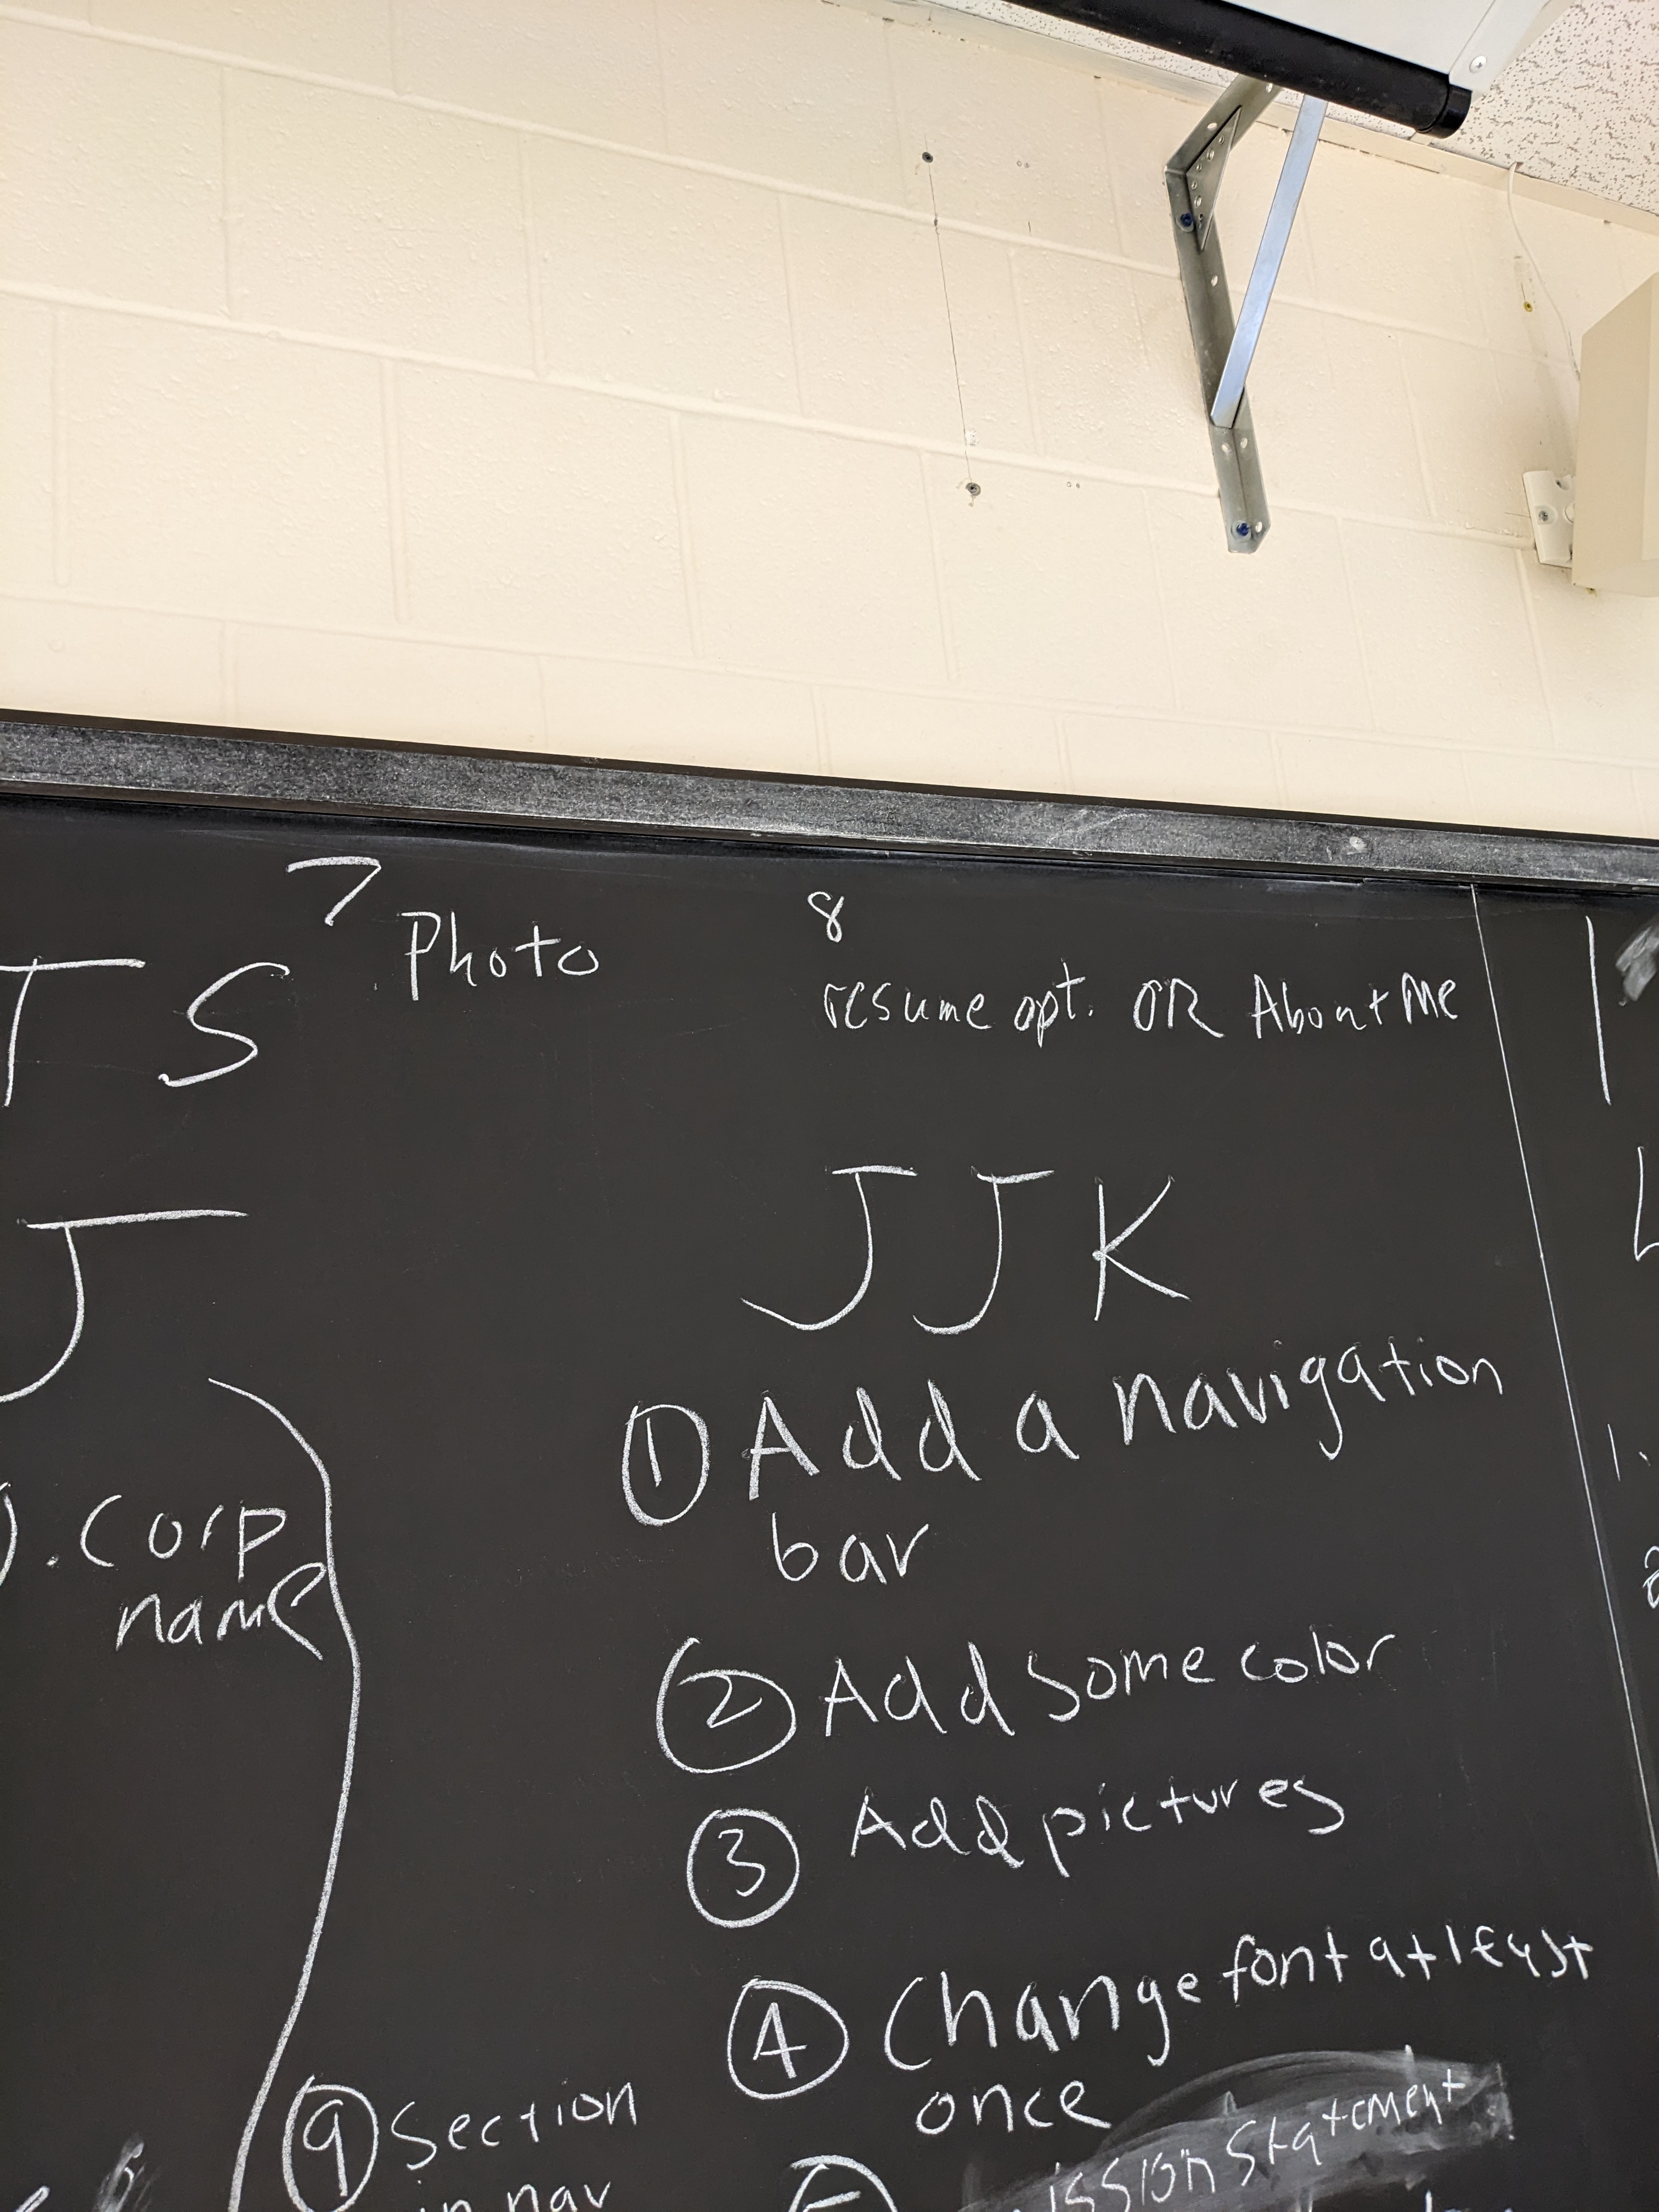 7
Photo
8
resume opt. OR About Me
T S
J
J J K
1 Add a navigation
bar
. Corp
name
2 Add some color
3 Add pictures
4 Change font at least
once
9 Section
in nav
5
ission statement
1.